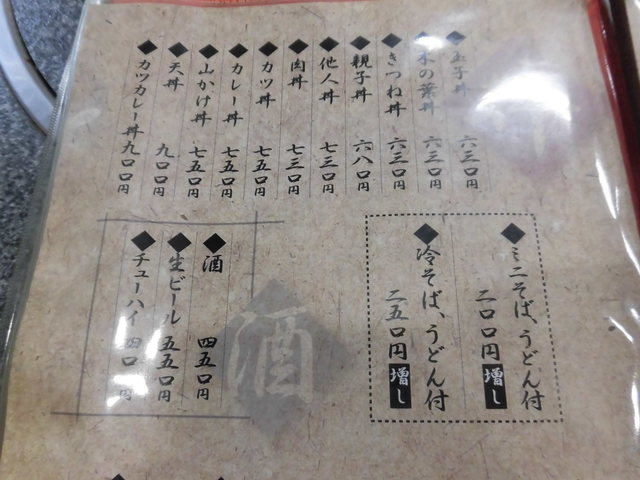 ◆玉子丼 六三〇円
◆木の葉丼 六三〇円
◆きつね丼 六三〇円
◆親子丼 六八〇円
◆他人丼 七三〇円
◆肉丼 七三〇円
◆カツ丼 七五〇円
◆カレー丼 七五〇円
◆山かけ丼 七五〇円
◆天丼 九〇〇円
◆カツカレー丼 九〇〇円
◆ミニそば、うどん付
二〇〇円増し
◆冷そば、うどん付
二五〇円増し
酒
◆酒 四五〇円
◆生ビール 五五〇円
◆チューハイ 四〇〇円